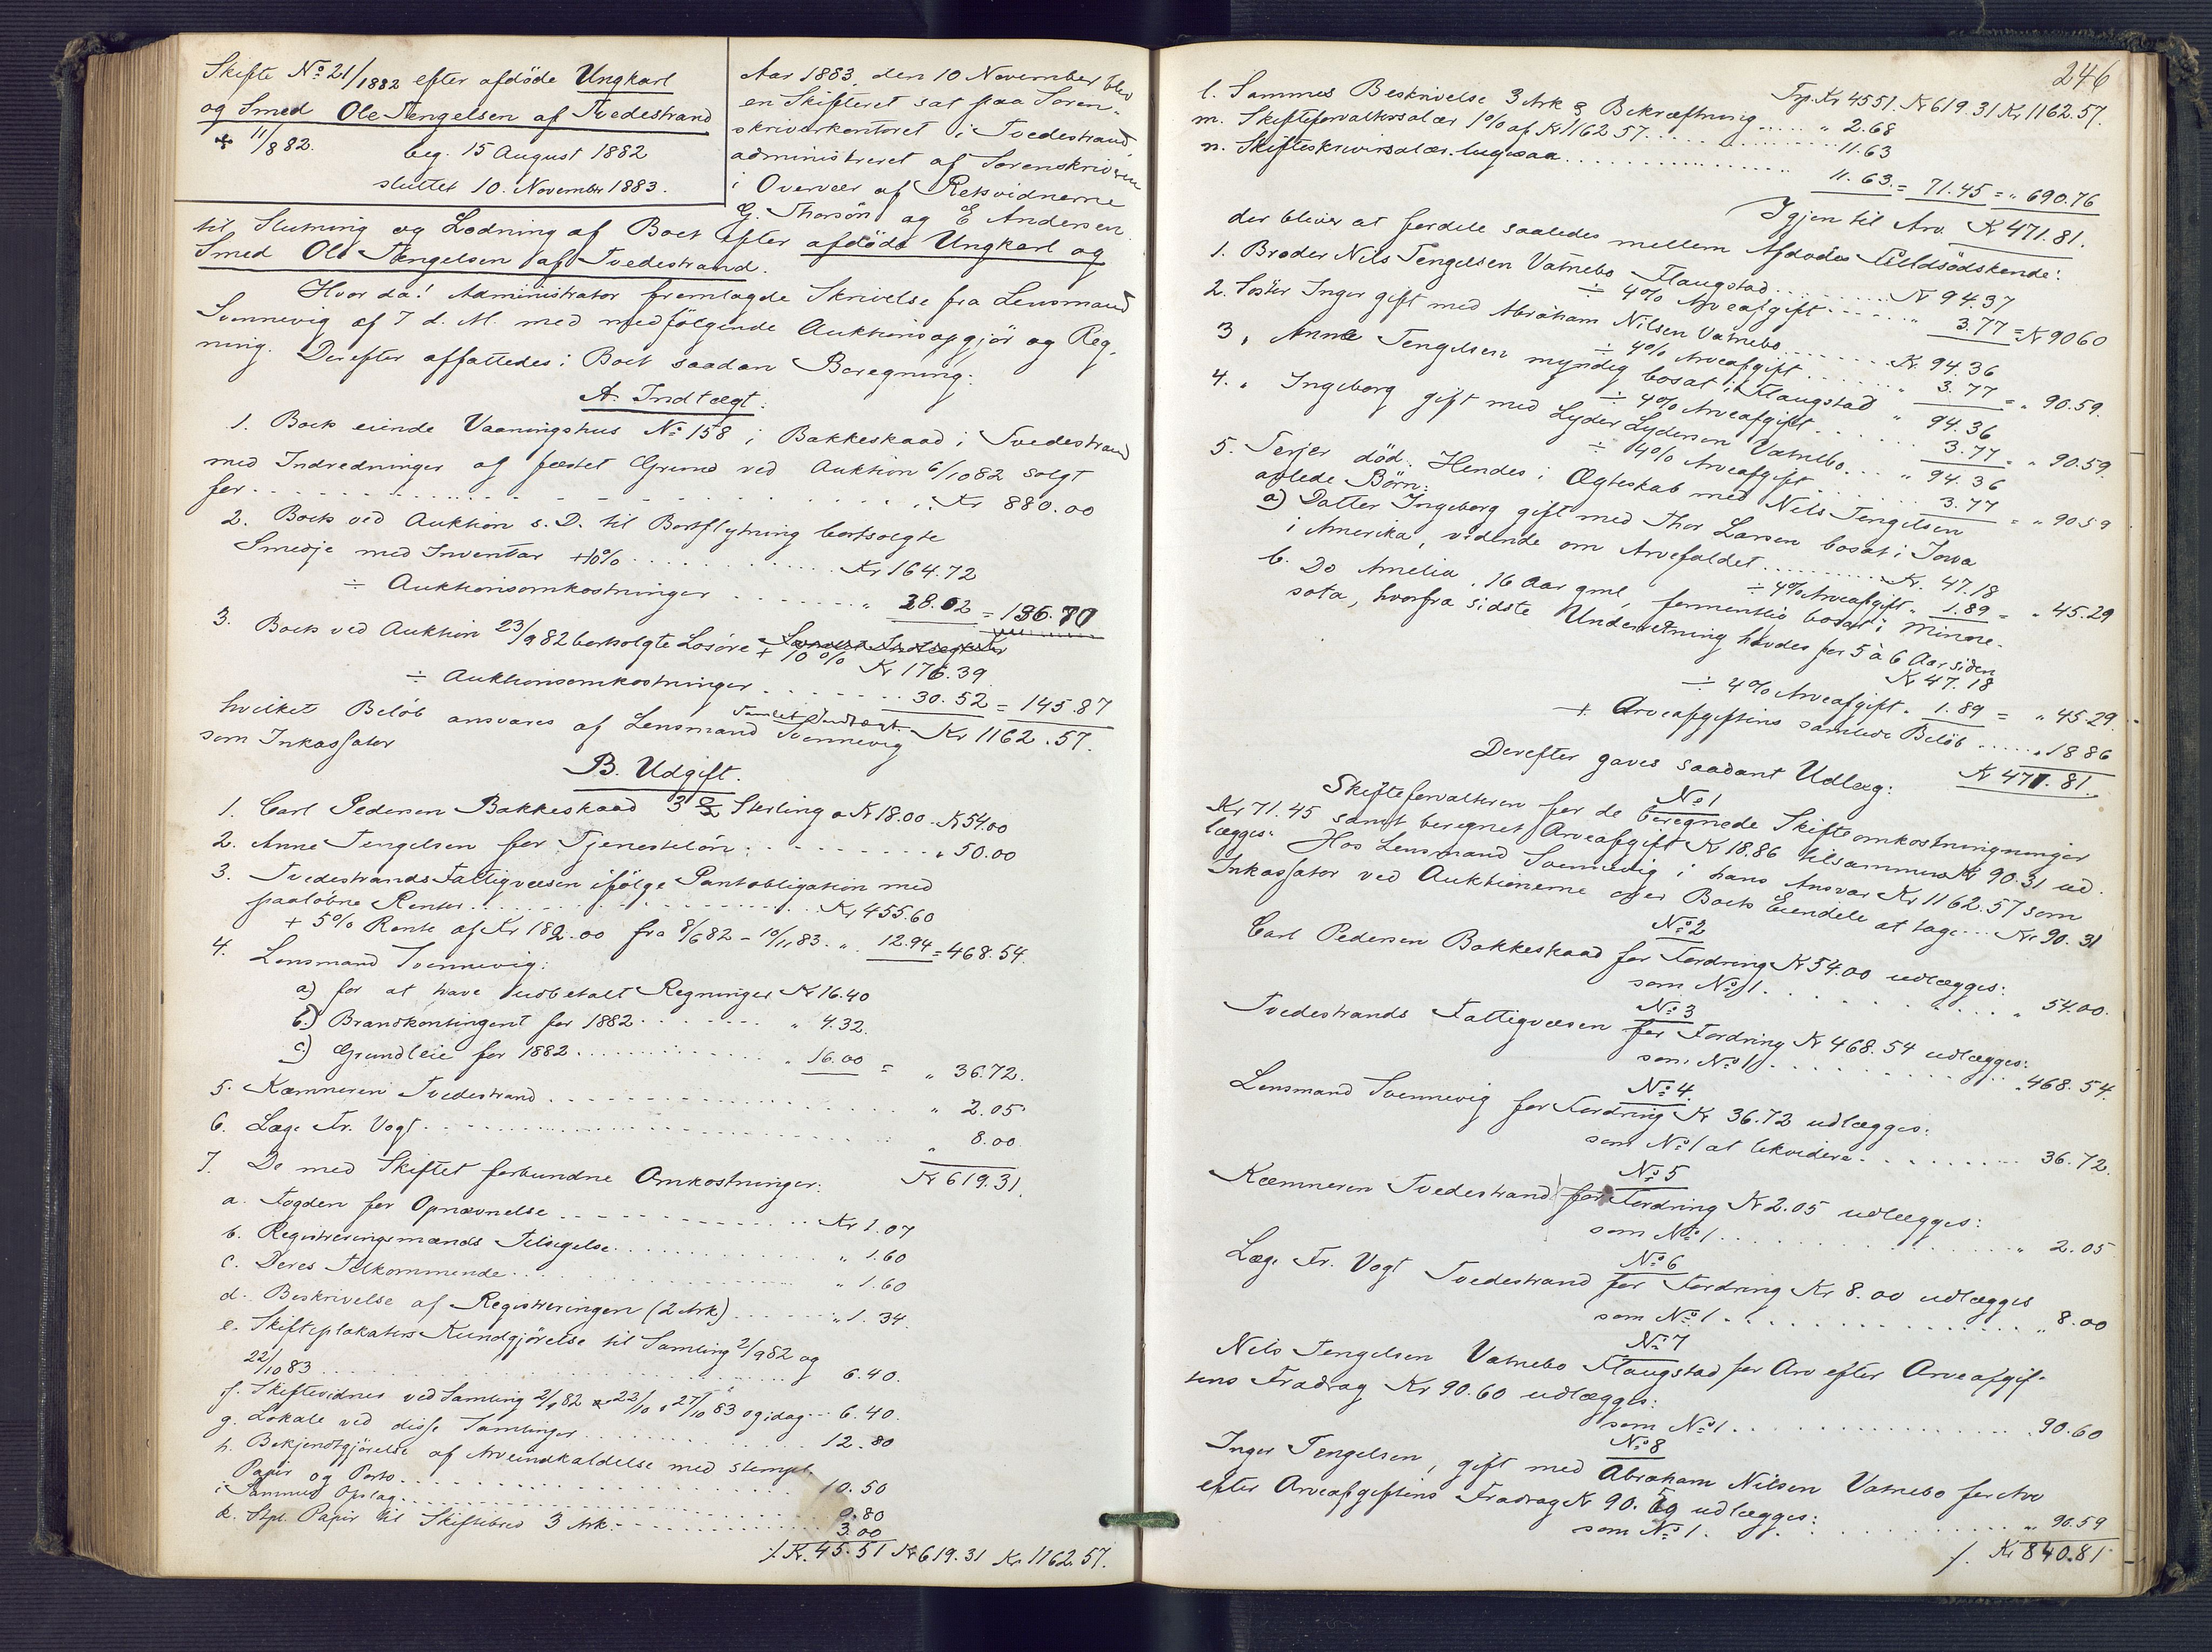 Skifte No 21/1882 efter afdöde Ungkarl
og Smed Ole Tengelsen af Tvedestrand
11/8 82.
beg. 15 August 1882
sluttet 10. November 1883.
Aar 1883 den 10 November blev
en Skifteret sat paa Soren-
skriverkontoret i Tvedestrand
administreret af Sorenskriveren
i Overvær af Retsvidnerne
G. Thorsön og E Andersen
til Slutning og Lodning af Boet efter afdöde Ungkarl og
Smed Ole Tengelsen af Tvedestrand.
Hvor da! Administrator fremlagde Skrivelse fra Lensmand
Svennevig af 7 d. M. med medfölgende Auktionsopgjör og Reg-
ning. Derefter affattedes i Boet saadan Beregning:
A. Indtægt:
1. Boets eiende Vaaningshus No 158 i Bakkeskaad i Tvedestrand
med Indredninger og fæstet Grund ved Auktion 6/10 82 solgt
for . . . Kr 880.00
2. Boets ved Auktion s. D. til Bortflytning bortsolgte
Smedje med Inventar +10% . . . Kr 164.72
÷ Auktionsomkostninger . . . " 28.02 = 136.70
3. Boets ved Auktion 23/9 82 bortsolgte Losöre
+ 10% Kr 176.39
÷ Auktionsomkostninger . . . 30.52 = 145.87
Samlet Indtægt. Kr 1162.57.
hvilket Belöb ansvares af Lensmand Svennevig
som Inkassator
B. Udgift.
1. Carl Pedersen Bakkeskaad 3 Sterling a Kr 18.00 . Kr 54.00
2. Anne Tengelsen for Tjenestelön . . . " 50.00
3. Tvedestrands Fattigvæsen ifölge Pantobligation med
paalöbne Renter . . . Kr 455.60
+ 5% Rente af Kr 182.00 fra 8/6 82 – 10/11 83 . " 12.94 = 468.54
4. Lensmand Svennevig:
a) for at have udbetalt Regninger Kr 16.40
b.) Brandkontingent for 1882 . . . " 4.32.
c.) Grundleie for 1882 . . . " 16.00 = " 36.72.
5. Kæmneren Tvedestrand . . . " 2.05
6. Læge Fr. Vogt . . . " 8.00
Kr 619.31.
7. De med Skiftet forbundne Omkostninger:
a. Fogden for Opnævnelse . . . Kr 1.07
b. Registreringsmænds Tilsigelse . . . " 1.60
c. Deres Tilkommende . . . " 1.60
d. Beskrivelse af Registreringen (2 Ark) . . . " 1.34.
e. Skifteplakaters Kundgjörelse til Samling 2/9 82 og
22/10 83 . . . 6.40.
f. Skiftevidner ved Samling 2/9 82 22/10 27/10 83 og idag . . 6.40.
g. Lokale ved disse Samlinger . . . 12.80
h. Bekjendtgjörelse af Arveindkaldelse med stempl.
Papir og Porto . . . 10.50
i. Sammes Opslag . . . 0.80
k. Stpl. Papir til Skiftebrev 3 Ark . . . 3.00
/. Kr. 45.51 Kr 619.31 Kr 1162.57.
246
Trp. Kr 45.51. Kr 619.31 Kr 1162.57.
l. Sammes Beskrivelse 3 Ark & Bekræftning . . . " 2.68
m. Skifteforvaltersalær 1% af Kr 1162.57 . . . 11.63
n. Skifteskriversalær ligesaa . . . 11.63. = 71.45 = " 690.76
Igjen til Arv Kr 471.81.
der bliver at fordele saaledes mellem Afdödes Helldsödskende:
1. Broder Nils Tengelsen Vatnebo Flaugstad . . . Kr 94.37
÷ 4% Arveafgift . . . " 3.77 = Kr 90.60
2. Söster Inger gift med Abraham Nilsen Vatnebo . . . Kr. 94.36
÷ 4% Arveafgift . . . " 3.77 = " 90.59.
3. " Anne Tengelsen myndig bosat i Flaugstad " 94.36
÷ 4% Arveafgift . . . 3.77 = " 90.59.
4. " Ingeborg gift med Lyder Lydersen Vatnebo . . . " 94.36
÷ 4% Arveafgift . . . 3.77 = " 90.59
5. Terjer död. Hendes i Ægteskab med Nils Tengelsen
avlede Börn:
a) Datter Ingeborg gift med Thor Larsen bosat i Iowa
i Amerika, vidende om Arvefaldet . . . Kr. 47.18
÷ 4% Arveafgift " 1.89 = " 45.29
b. Do Amelia, 16 Aar gml, formentlig bosat i Minne-
sota, hvorfra sidste Underretning havdes for 5 à 6 Aar siden
Kr 47.18
÷ 4% Arveafgift . 1.89 = " 45.29
+ Arveafgiftens samlede Belöb . . . " 18.86
Kr 471.81.
Derefter gaves saadant Udlæg:
No 1
Skifteforvalteren for de beregnede Skifteomkostningninger
Kr 71.45 samt beregnet Arveafgift Kr 18.86 tilsammen Kr 90.31 ud-
lægges: Hos Lensmand Svennevig i hans Ansvar Kr 1162.57 som
Inkassator ved Auktionerne over Boets Eiendele at tage . . . Kr 90.31
No 2
Carl Pedersen Bakkeskaad for Fordring Kr 54.00 udlægges:
som No 1 . . . " 54.00.
No 3
Tvedestrands Fattigvæsen for Fordring Kr 468.54 udlægges:
som No 1 . . . " 468.54.
No 4.
Lensmand Svennevig for Fordring Kr 36.72 udlægges:
som No 1 at likvidere . . . 36.72.
No 5
Kæmneren Tvedestrand for Fordring Kr 2.05 udlægges:
som No 1 . . . " 2.05
No 6
Læge Fr. Vogt Tvedestrand for Fordring Kr 8.00 udlægges
som No 1 . . . " 8.00
No 7
Nils Tengelsen Vatnebo Flaugstad for Arv efter Arveafgif-
tens Fradrag Kr 90.60 udlægges:
som No 1 . . . 90.60
No 8
Inger Tengelsen, gift med Abraham Nilsen Vatnebo for Arv
efter Arveafgiftens Fradrag Kr 90.59 udlægges:
som No 1 . . . " 90.59
/. Kr 840.81